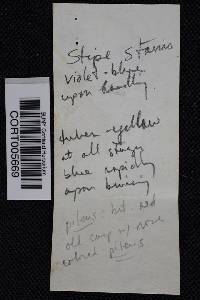 Stipe stains
violet-blue
upon handling.
tubes-yellow
at all stages
blue rapidly
upon bruising
pileus - but red
old comp w/ rose
colored pileus
CORT005669